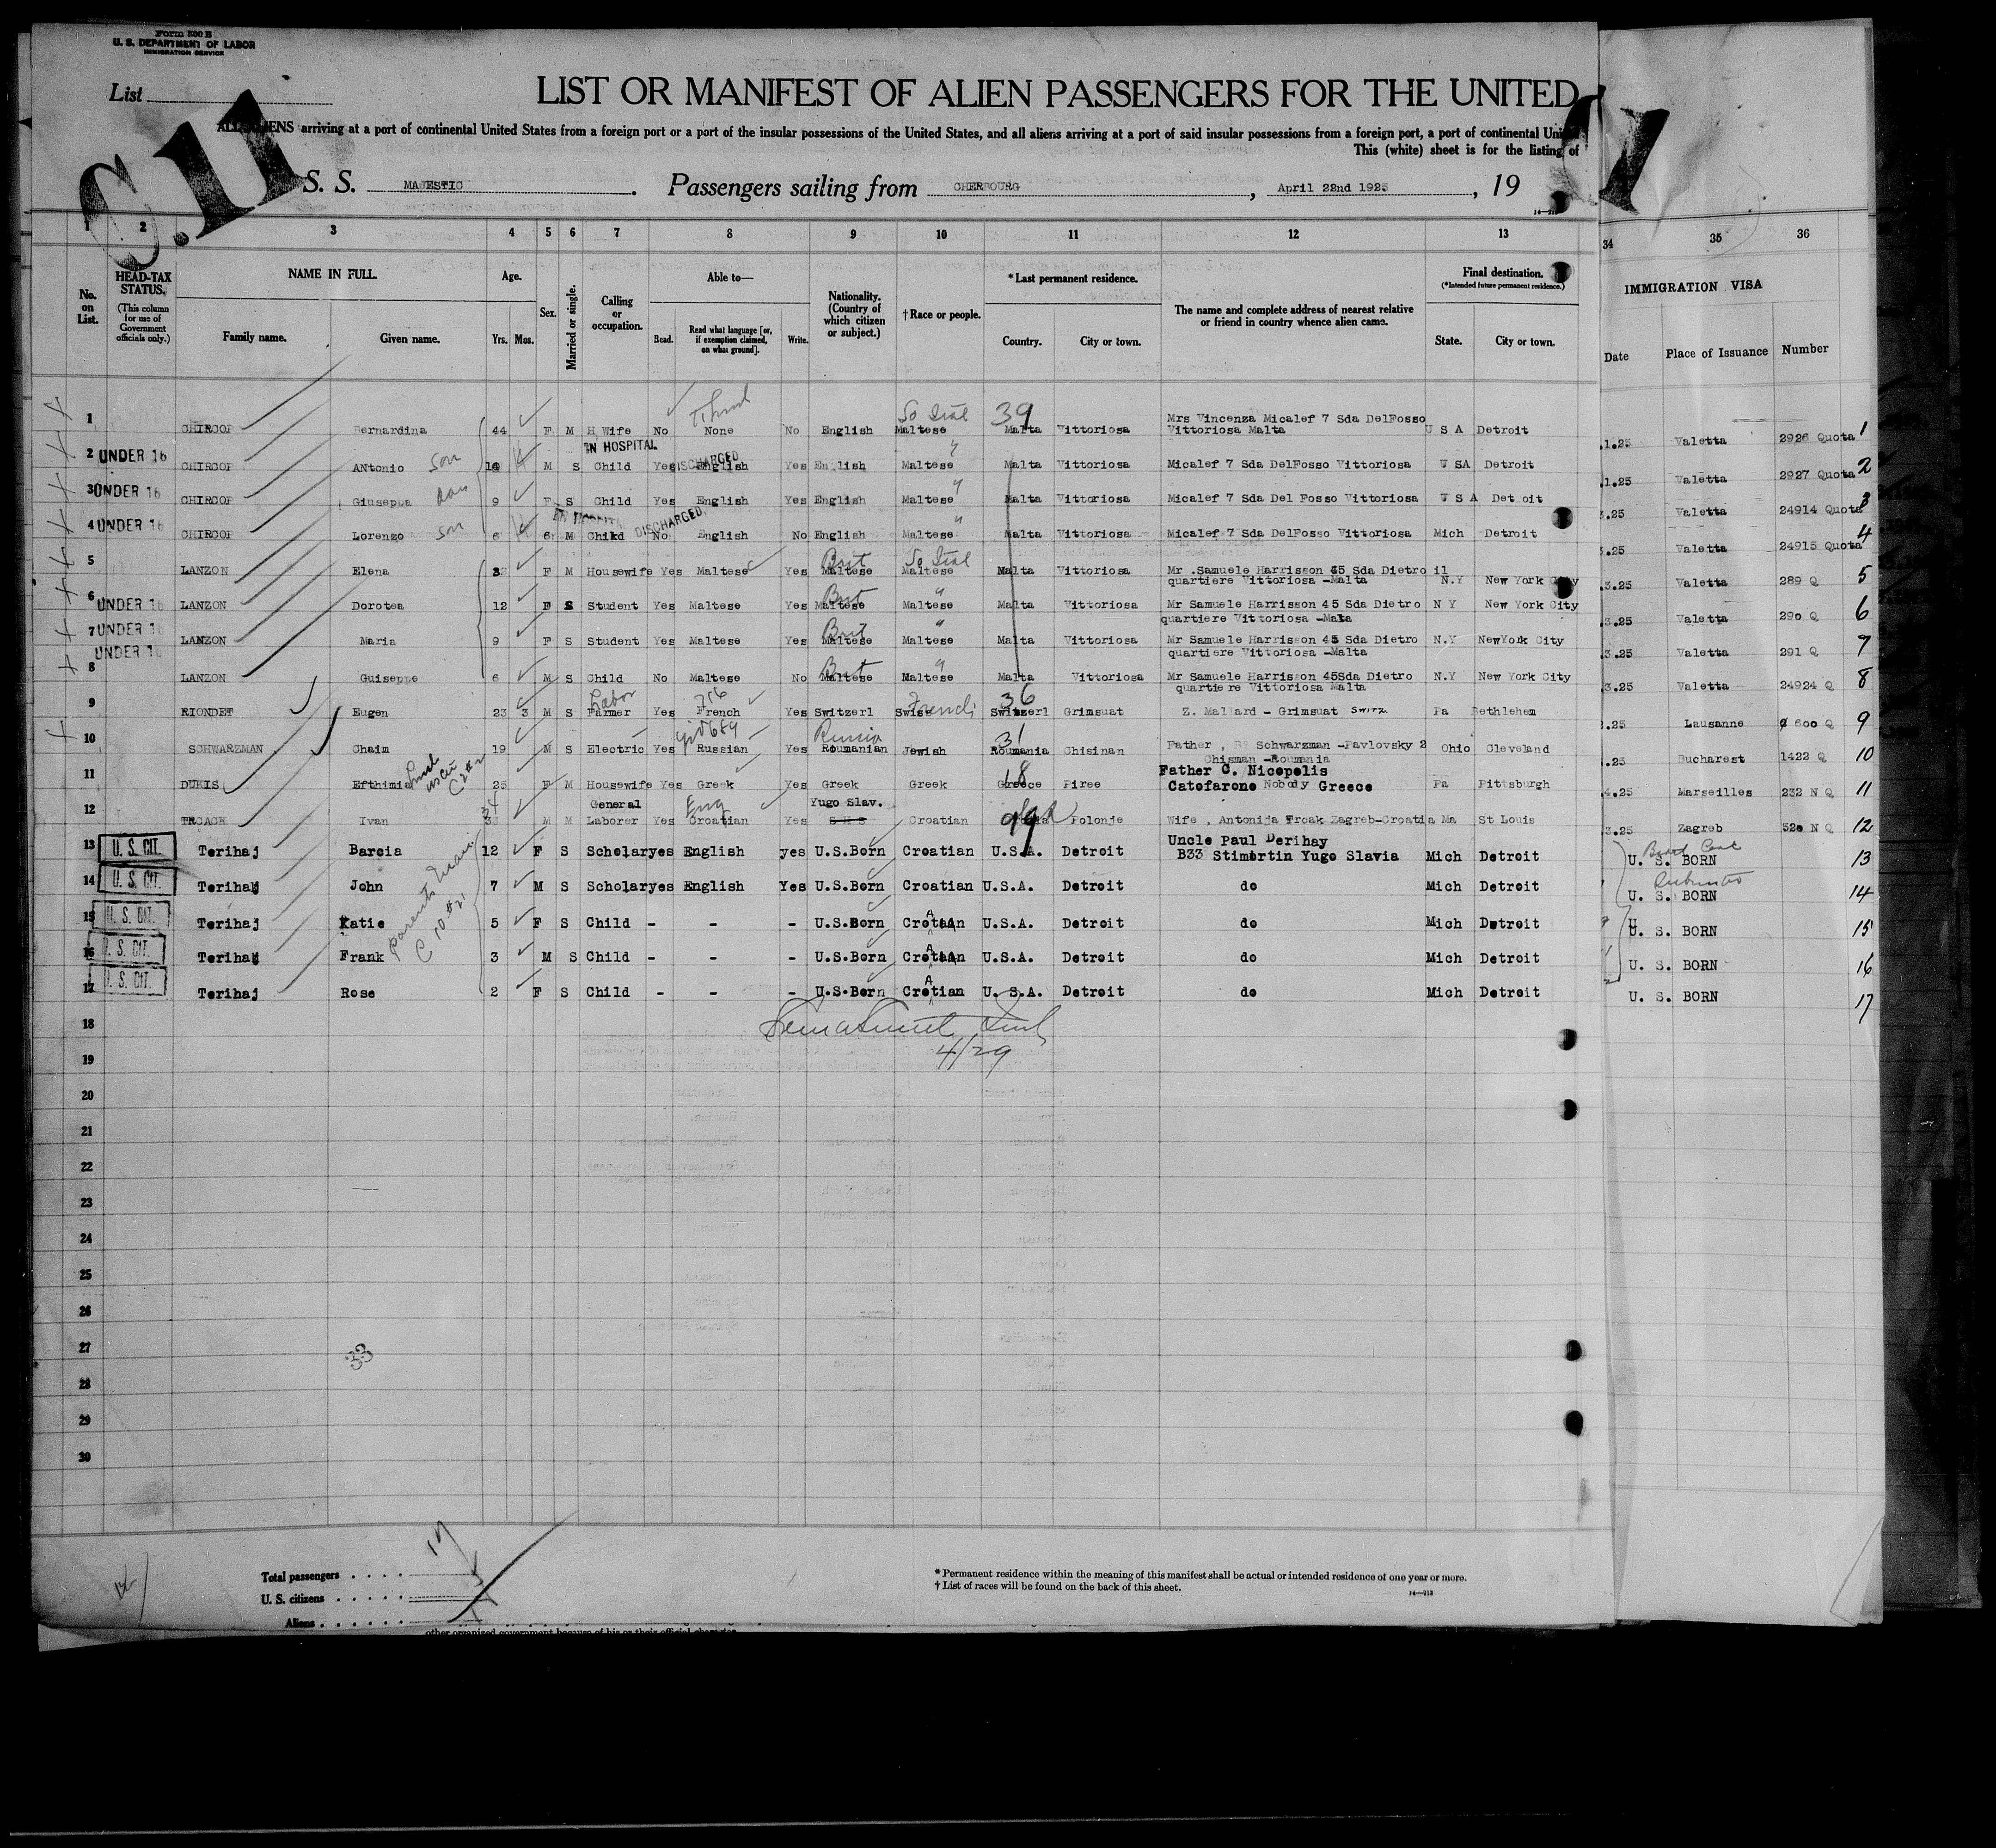 Form 500 B
U. S. DEPARTMENT OF LABOR
IMMIGRATION SERVICE
List
LIST OR MANIFEST OF ALIEN PASSENGERS FOR THE UNITED
ALL ALIENS arriving at a port of continental United States from a foreign port or a port of the insular possessions of the United States, and all aliens arriving at a port of said insular possessions from a foreign port, a port of continental Uni
This (white) sheet is for the listing of
C.11
S. S. MAJESTIC. Passengers sailing from CHERBOURG, April 22nd 1925, 19
1 2 3 4 5 6 7 8 9 10 11 12 13 34 35 36
No. on List.
HEAD-TAX STATUS.
(This column for use of Government officials only.)
NAME IN FULL.
Family name. Given name.
Age.
Yrs. Mos.
Sex.
Married or single.
Calling or occupation.
Able to—
Read. Read what language [or, if exemption claimed, on what ground]. Write.
Nationality. (Country of which citizen or subject.)
† Race or people.
* Last permanent residence.
Country. City or town.
The name and complete address of nearest relative or friend in country whence alien came.
Final destination.
(*Intended future permanent residence.)
State. City or town.
IMMIGRATION VISA
Date Place of Issuance Number
So Ital 39
Mrs Vincenza Micalef 7 Sda DelFosso
1 CHIRCOP Bernardina 44 F M H Wife No None No English Maltese Malta Vittoriosa Vittoriosa Malta U S A Detroit 1.25 Valetta 2926 Quota 1
IN HOSPITAL DISCHARGED
2 UNDER 16 CHIRCOP ANtonio son 10 M S Child Yes English Yes English Maltese Malta Vittoriosa Micalef 7 Sda DelFosso Vittoriosa U SA Detroit 1.25 Valetta 2927 Quota 2
3 UNDER 16 CHIRCOP Giuseppa dau 9 F S Child Yes English Yes English Maltese Malta Vittoriosa Micalef 7 Sda Del Fosso Vittoriosa U S A Det oit 3.25 Valetta 24914 Quota 3
DISCHARGED
4 UNDER 16 CHIRCOP Lorenzo son 6 6 M Child No English No English Maltese Malta Vittoriosa Micalef 7 Sda DelFosso Vittoriosa Mich Detroit 3.25 Valetta 24915 Quota 4
Brit So Ital
5 LANZON Elena F M Housewife Yes Maltese Yes Maltese Maltese Malta Vittoriosa Mr .Samuele Harrisson 45 Sda Dietro il
quartiere Vittoriosa -Malta N.Y New York City 3.25 Valetta 289 Q 5
Brit
6 UNDER 16 LANZON Dorotea 12 F S Student Yes Maltese Yes Maltese Maltese Malta Vittoriosa Mr Samuele Harrisson 45 Sda Dietro N Y New York City 3.25 Valetta 290 Q 6
quartiere Vittoriosa -Malta
Brit
7 UNDER 16 LANZON Maria 9 F S Student Yes Maltese Yes Maltese Maltese Malta Vittoriosa Mr Samuele Harrisson 45 Sda Dietro N.Y NewYoik City 3.25 Valetta 291 Q 7
quartiere Vittoriosa -Malta
UNDER 16 Brit
8 LANZON Guiseppe 6 M S Child No Maltese No Maltese Maltese Malta Vittoriosa Mr Samuele Harrisson 45Sda Dietro N.Y New York City 3.25 Valetta 24924 Q 8
quartiere Vittoriosa Malta
Labor French 36
9 RIONDET Eugen 23 3 M S Farmer Yes French Yes Switzerl Swiss Switzerl Grimsuat Z. Mallard - Grimsuat Switz Pa Bethlehem 2.25 Lausanne 600 Q 9
Russia 31
10 SCHWARZMAN Chaim 19 M S Electric Yes Russian Yes Roumanian Jewish Roumania Chisinan Father , Schwarzman -Pavlovsky 2 Ohio Cleveland .25 Bucharest 1422 Q 10
Chisman -Roumania
18 Father C. Nicopolis
11 DUKIS Efthimia 25 F M Housewife Yes Greek Yes Greek Greek Greece Piree Catofarone Nobody Greece Pa Pittsburgh 4.25 Marseilles 232 N Q 11
34 General Eng Yugo Slav.
12 Ivan M M Laborer Yes Croatian Yes S H S Croatian Polonje Wife , Antonija Zagreb-Croatia Ma St Louis 3.25 Zagreb 520 N Q 12
Uncle Paul Derihay
13 U. S. CIT. Terihaj Barcia 12 F S Scholar yes English yes U.S.Born Croatian U.S.A. Detroit B33 Stimortin Yugo Slavia Mich Detroit U. S. BORN 13
14 U. S. CIT. Terihaj John 7 M S Scholar yes English Yes U.S.Born Croatian U.S.A. Detroit do Mich Detroit U. S. BORN 14
15 U. S. CIT. Terihaj Katie 5 F S Child - - - U.S.Born Croatian U.S.A. Detroit do Mich Detroit U. S. BORN 15
16 U. S. CIT. Terihaj Frank 3 M S Child - - - U.S.Born Croatian U.S.A. Detroit do Mich Detroit U. S. BORN 16
17 U. S. CIT. Terihaj Rose 2 F S Child - - - U.S.Born Croatian U. S.A. Detroit do Mich Detroit U. S. BORN 17
parents
18
4/29
19
20
21
22
23
24
25
26
27
33
28
29
30
Total passengers . . . . 17
U. S. citizens . . . . .
Aliens . . . . . .
* Permanent residence within the meaning of this manifest shall be actual or intended residence of one year or more.
† List of races will be found on the back of this sheet.
14—213
other organized government because of his or their official character